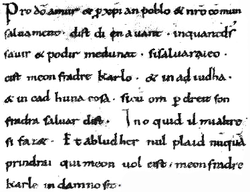 Pro dō amur & p xp̄i an poblo & nrō comun
saluament. dist di en auant. inquantdſ
sauir & podir medunat. sisaluaraieo.
cist meon fradre karlo. & in adiudha.
& in cad huna cosa. sicu om p dreit son
fradra saluar dist. Ino quid il mialtre
si faz&. Et abludher nul plaid nūquā
prindrai qui meon uol cist. meon fradre
karle in damno sit.